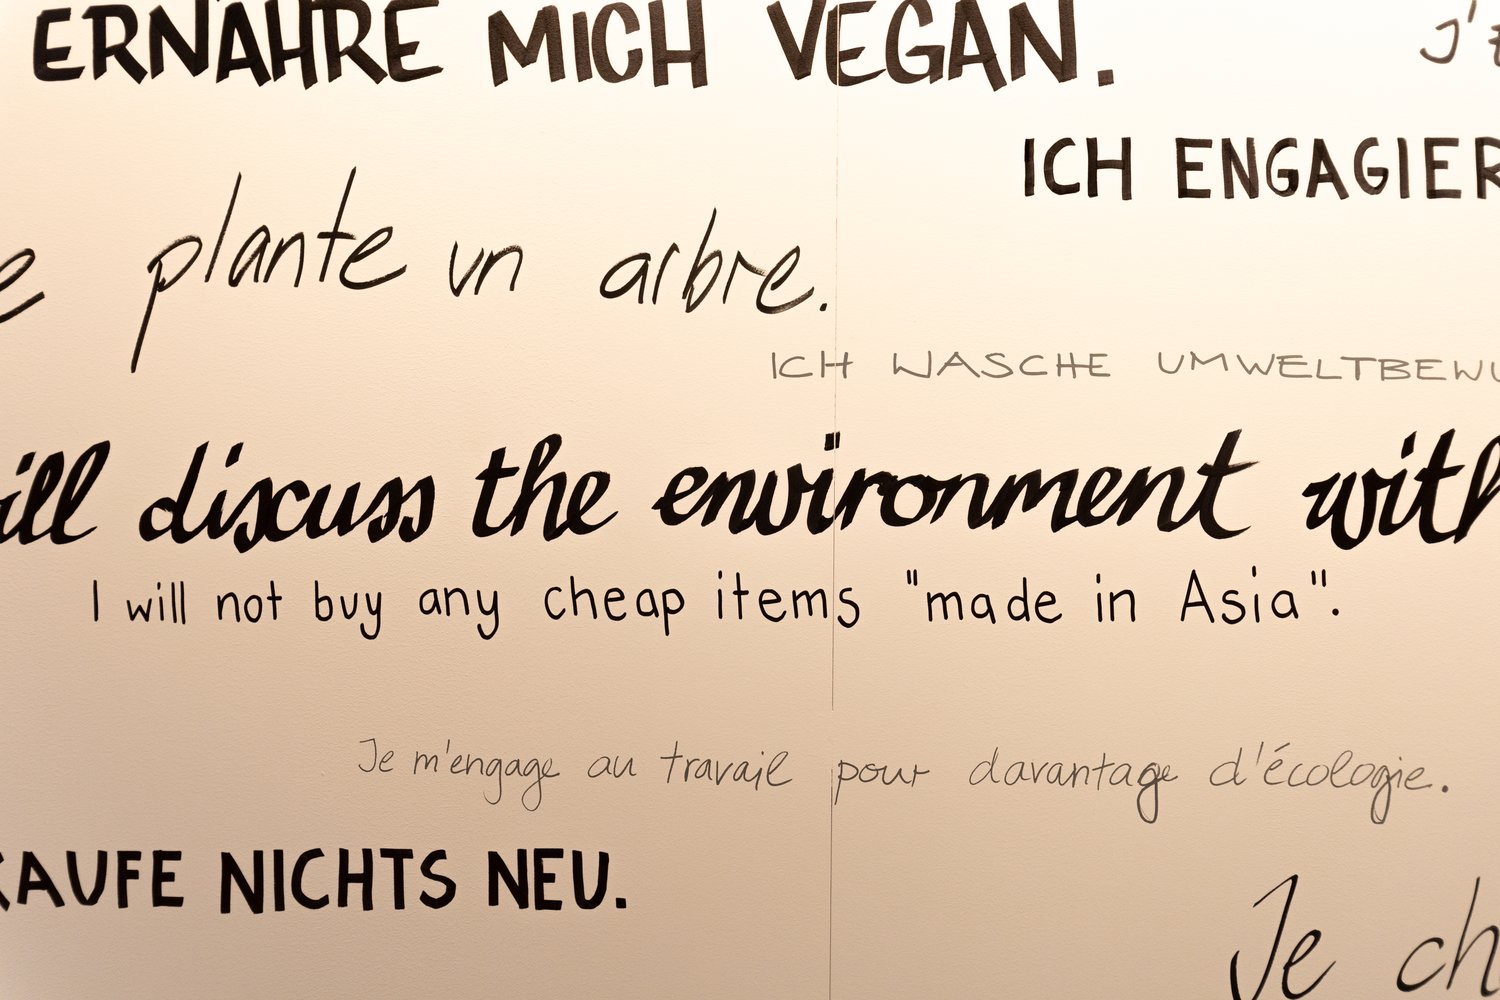 ERNÄHRE MICH VEGAN.
ICH ENGAGIER
plante un arbre.
ICH WASCHE UMWELTBEWU
ill discuss the environment with
I will not buy any cheap items "made in Asia".
Je m'engage au travail pour davantage d'écologie.
KAUFE NICHTS NEU.
Je ch